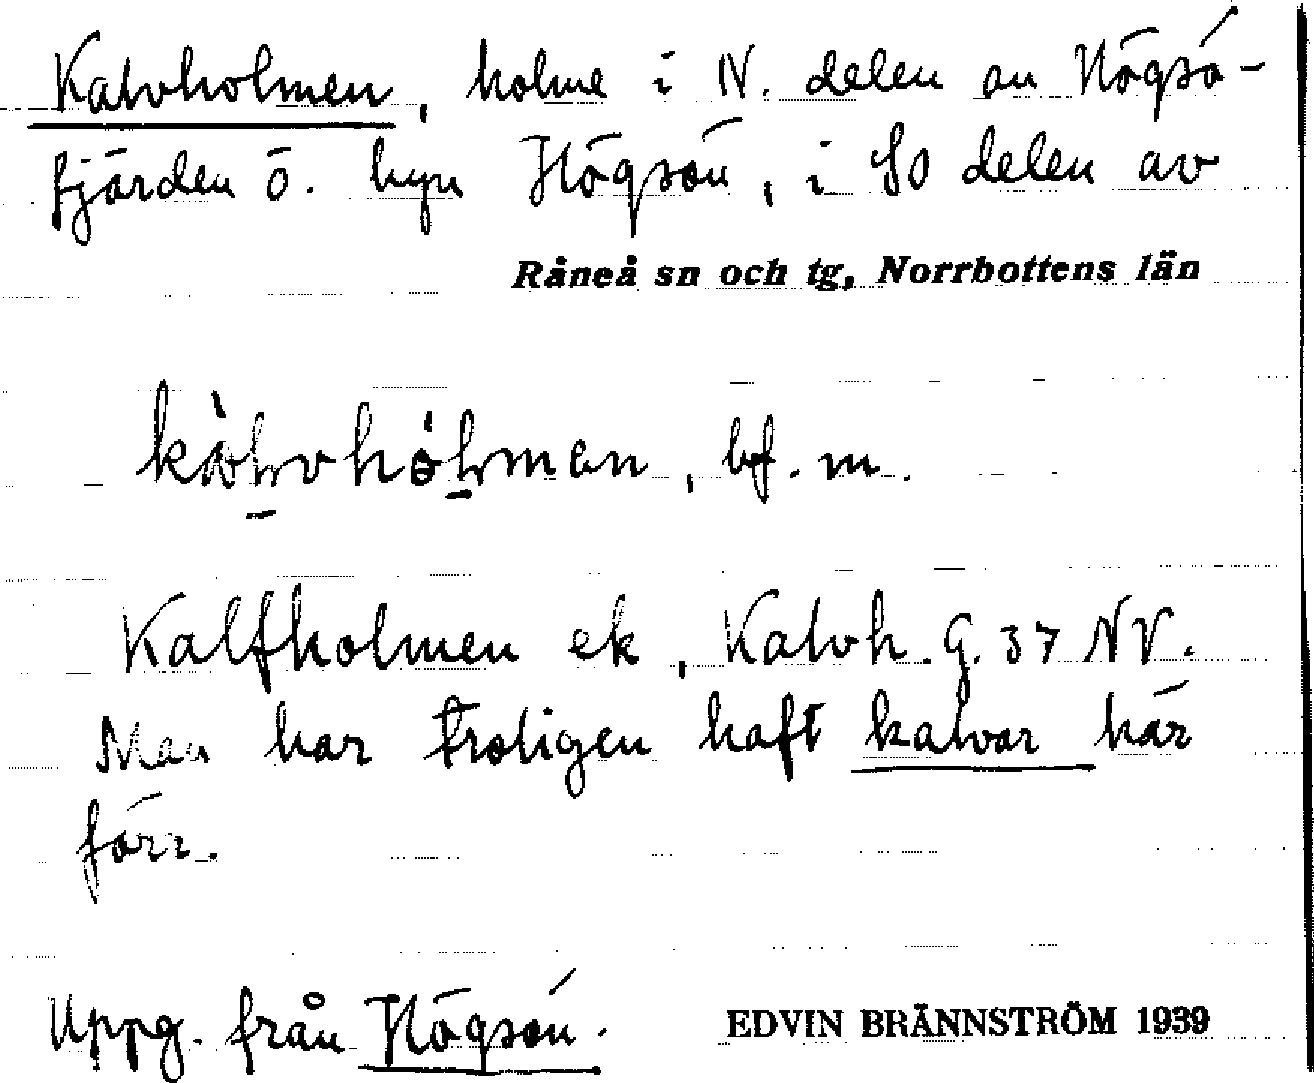 Kalvholmen, holme i N. delen av Högsö-
fjärden ö. byn Högsön, i SO delen av
Råneå sn och tg, Norrbottens län
bf. m.
Kalfholmen ek, Kalvh. G. 37 NV.
Man har troligen haft kalvar här
förr.
Uppg. från Högsön.
EDVIN BRÄNNSTRÖM 1939